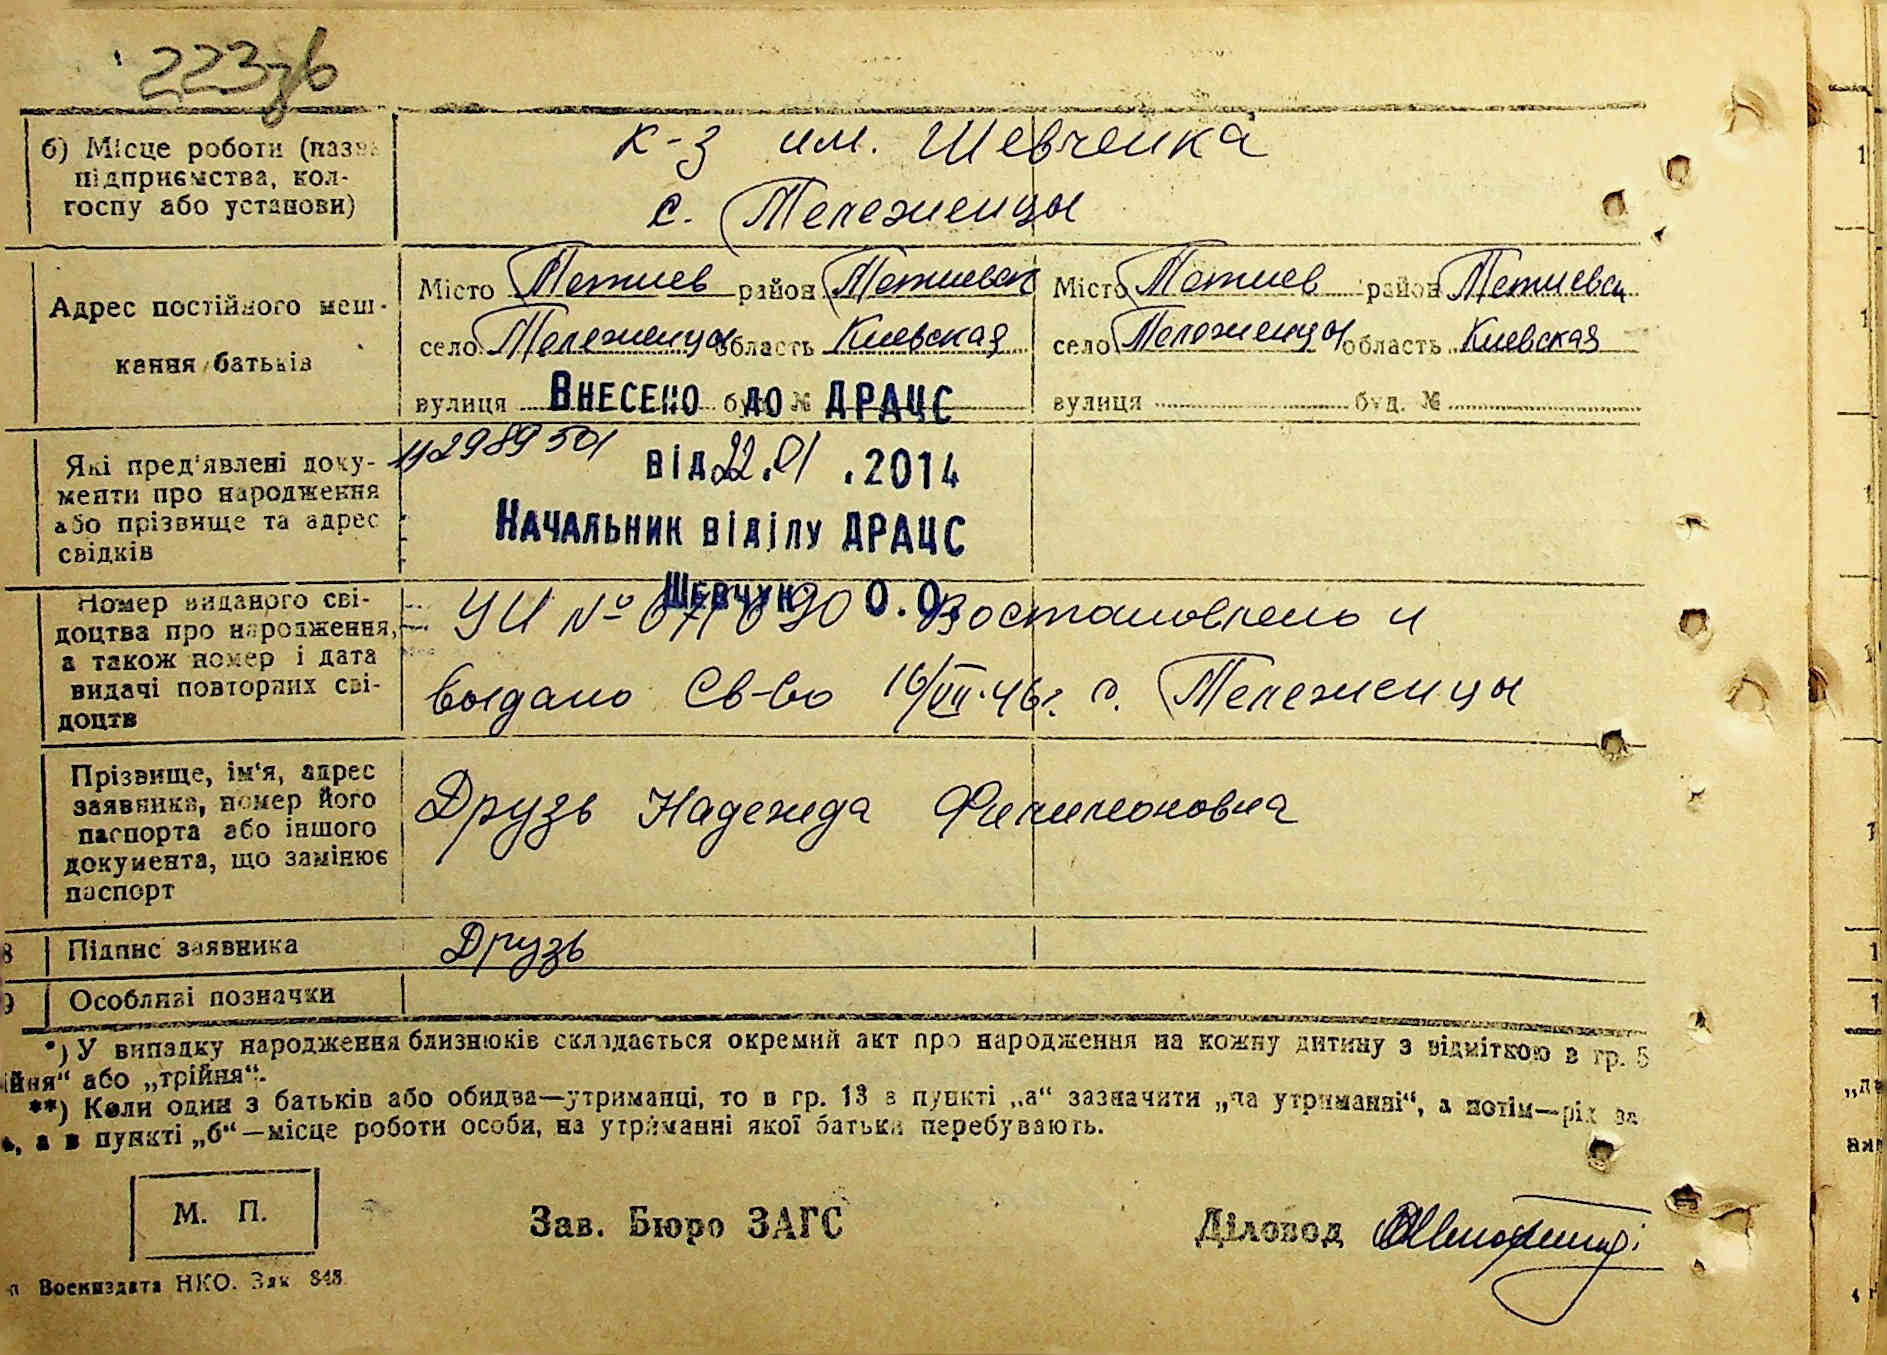 223зв
б) Місце роботи (назва
підприємства, кол-
госпу або установи)
к-з им. Шевченка
с. Тележенцы
Адрес постійного меш-
кання батьків
Місто Тетиев район Тетиевск
село Тележенцы область Киевская
вулиця буд. №
Місто Тетиев район Тетиевск
село Тележенцы область Киевская
вулиця буд. №
Внесено до ДРАЦС
від 22.01.2014
Начальник відділу ДРАЦС
Шевчук О.О.
Які пред'явлені доку-
менти про народження
або прізвище та адрес
свідків
Номер виданого сві-
доцтва про народження,
а також номер і дата
видачі повторних сві-
доцтв
УИ № Востановлено и
выдано Св-во 16/VII.46г. с. Тележенцы
Прізвище, ім'я, адрес
заявника, номер його
паспорта або іншого
документа, що замінює
паспорт
Друзь Надежда Филимоновна
8 Підпис заявника
Друзь
9 Особливі позначки
*) У випадку народження близнюків складається окремий акт про народження на кожну дитину з відміткою в гр. 5
ійня“ або „трійня“.
**) Коли один з батьків або обидва—утриманці, то в гр. 13 в пункті „а“ зазначити „на утриманні“, а потім—рід за
, а в пункті „б“—місце роботи особи, на утриманні якої батьки перебувають.
М. П.
Зав. Бюро ЗАГС
Діловод
Воениздата НКО. Зак. 848.